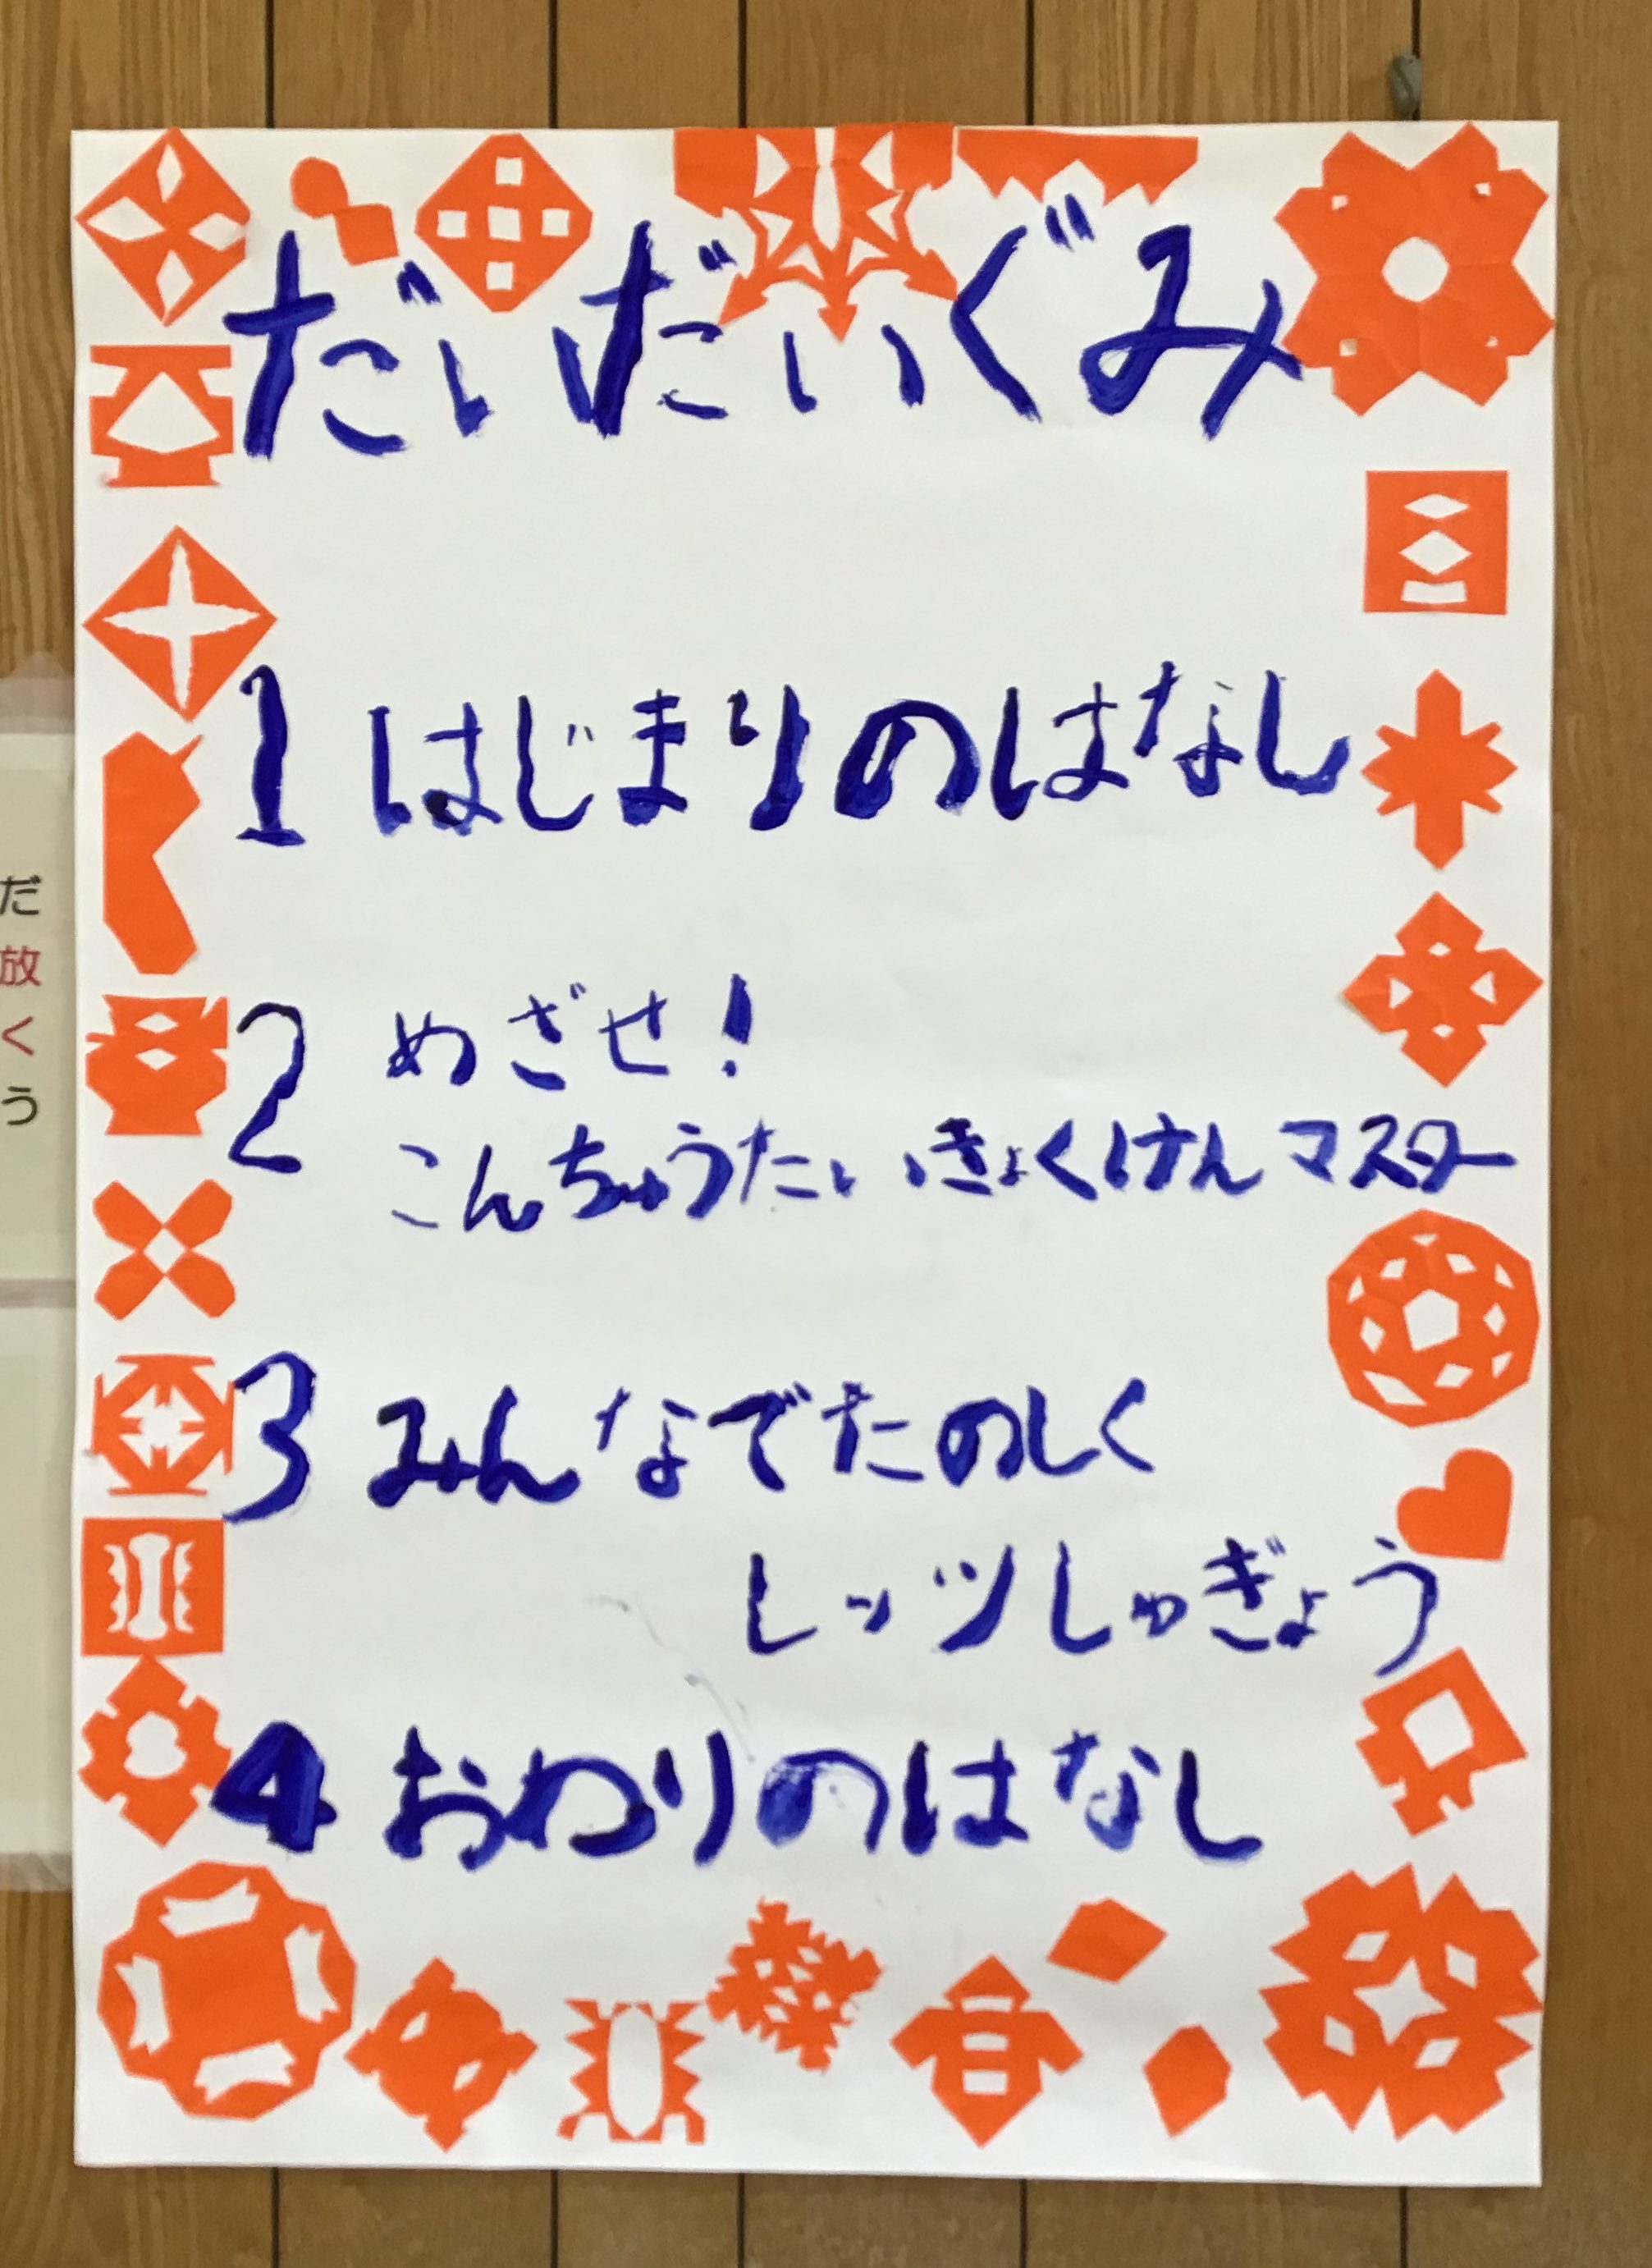 だいだいぐみ
1 はじまりのはなし
2 めざせ!
こんちゅうたいいきょくけんマスター
3 みんなでたのしく
レッツしゅぎょう
4 おわりのはなし
だ
放
く
う